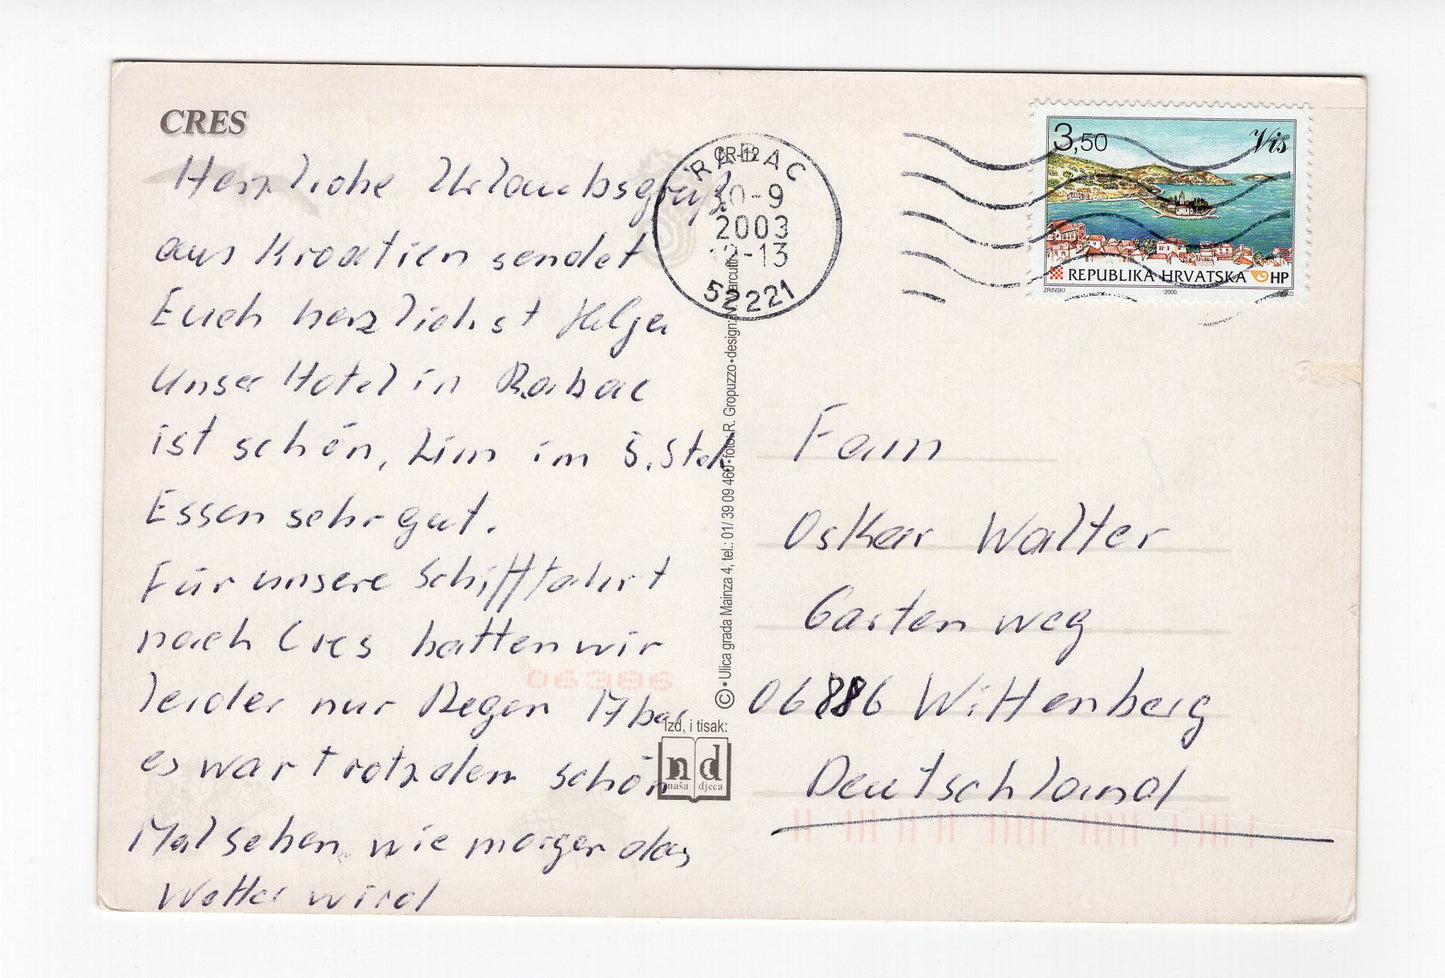 CRES
Herzliche Urlaubsgrüße
aus Kroatien sendet
Euch herzlichst Helga
Unser Hotel in Rabac
ist schön, Zim im 5. Stck
Essen sehr gut.
Für unsere Schifffahrt
nach Cres hatten wir
leider nur Regen Aber
es war trotzdem schön
Mal sehen wie morgen das
Wetter wird
RABAC
CR-12
10-9
2003
12-13
52221
3,50
Vis
REPUBLIKA HRVATSKA HP
ZRINSKI
2000.
© • Ulica grada Mainza 4, tel.: 01/ 39 09 460 • foto: R. Gropuzzo • design:
Izd. i tisak:
nd
naša djeca
06386
Fam
Oskar Walter
Gartenweg
06886 Wittenberg
Deutschland